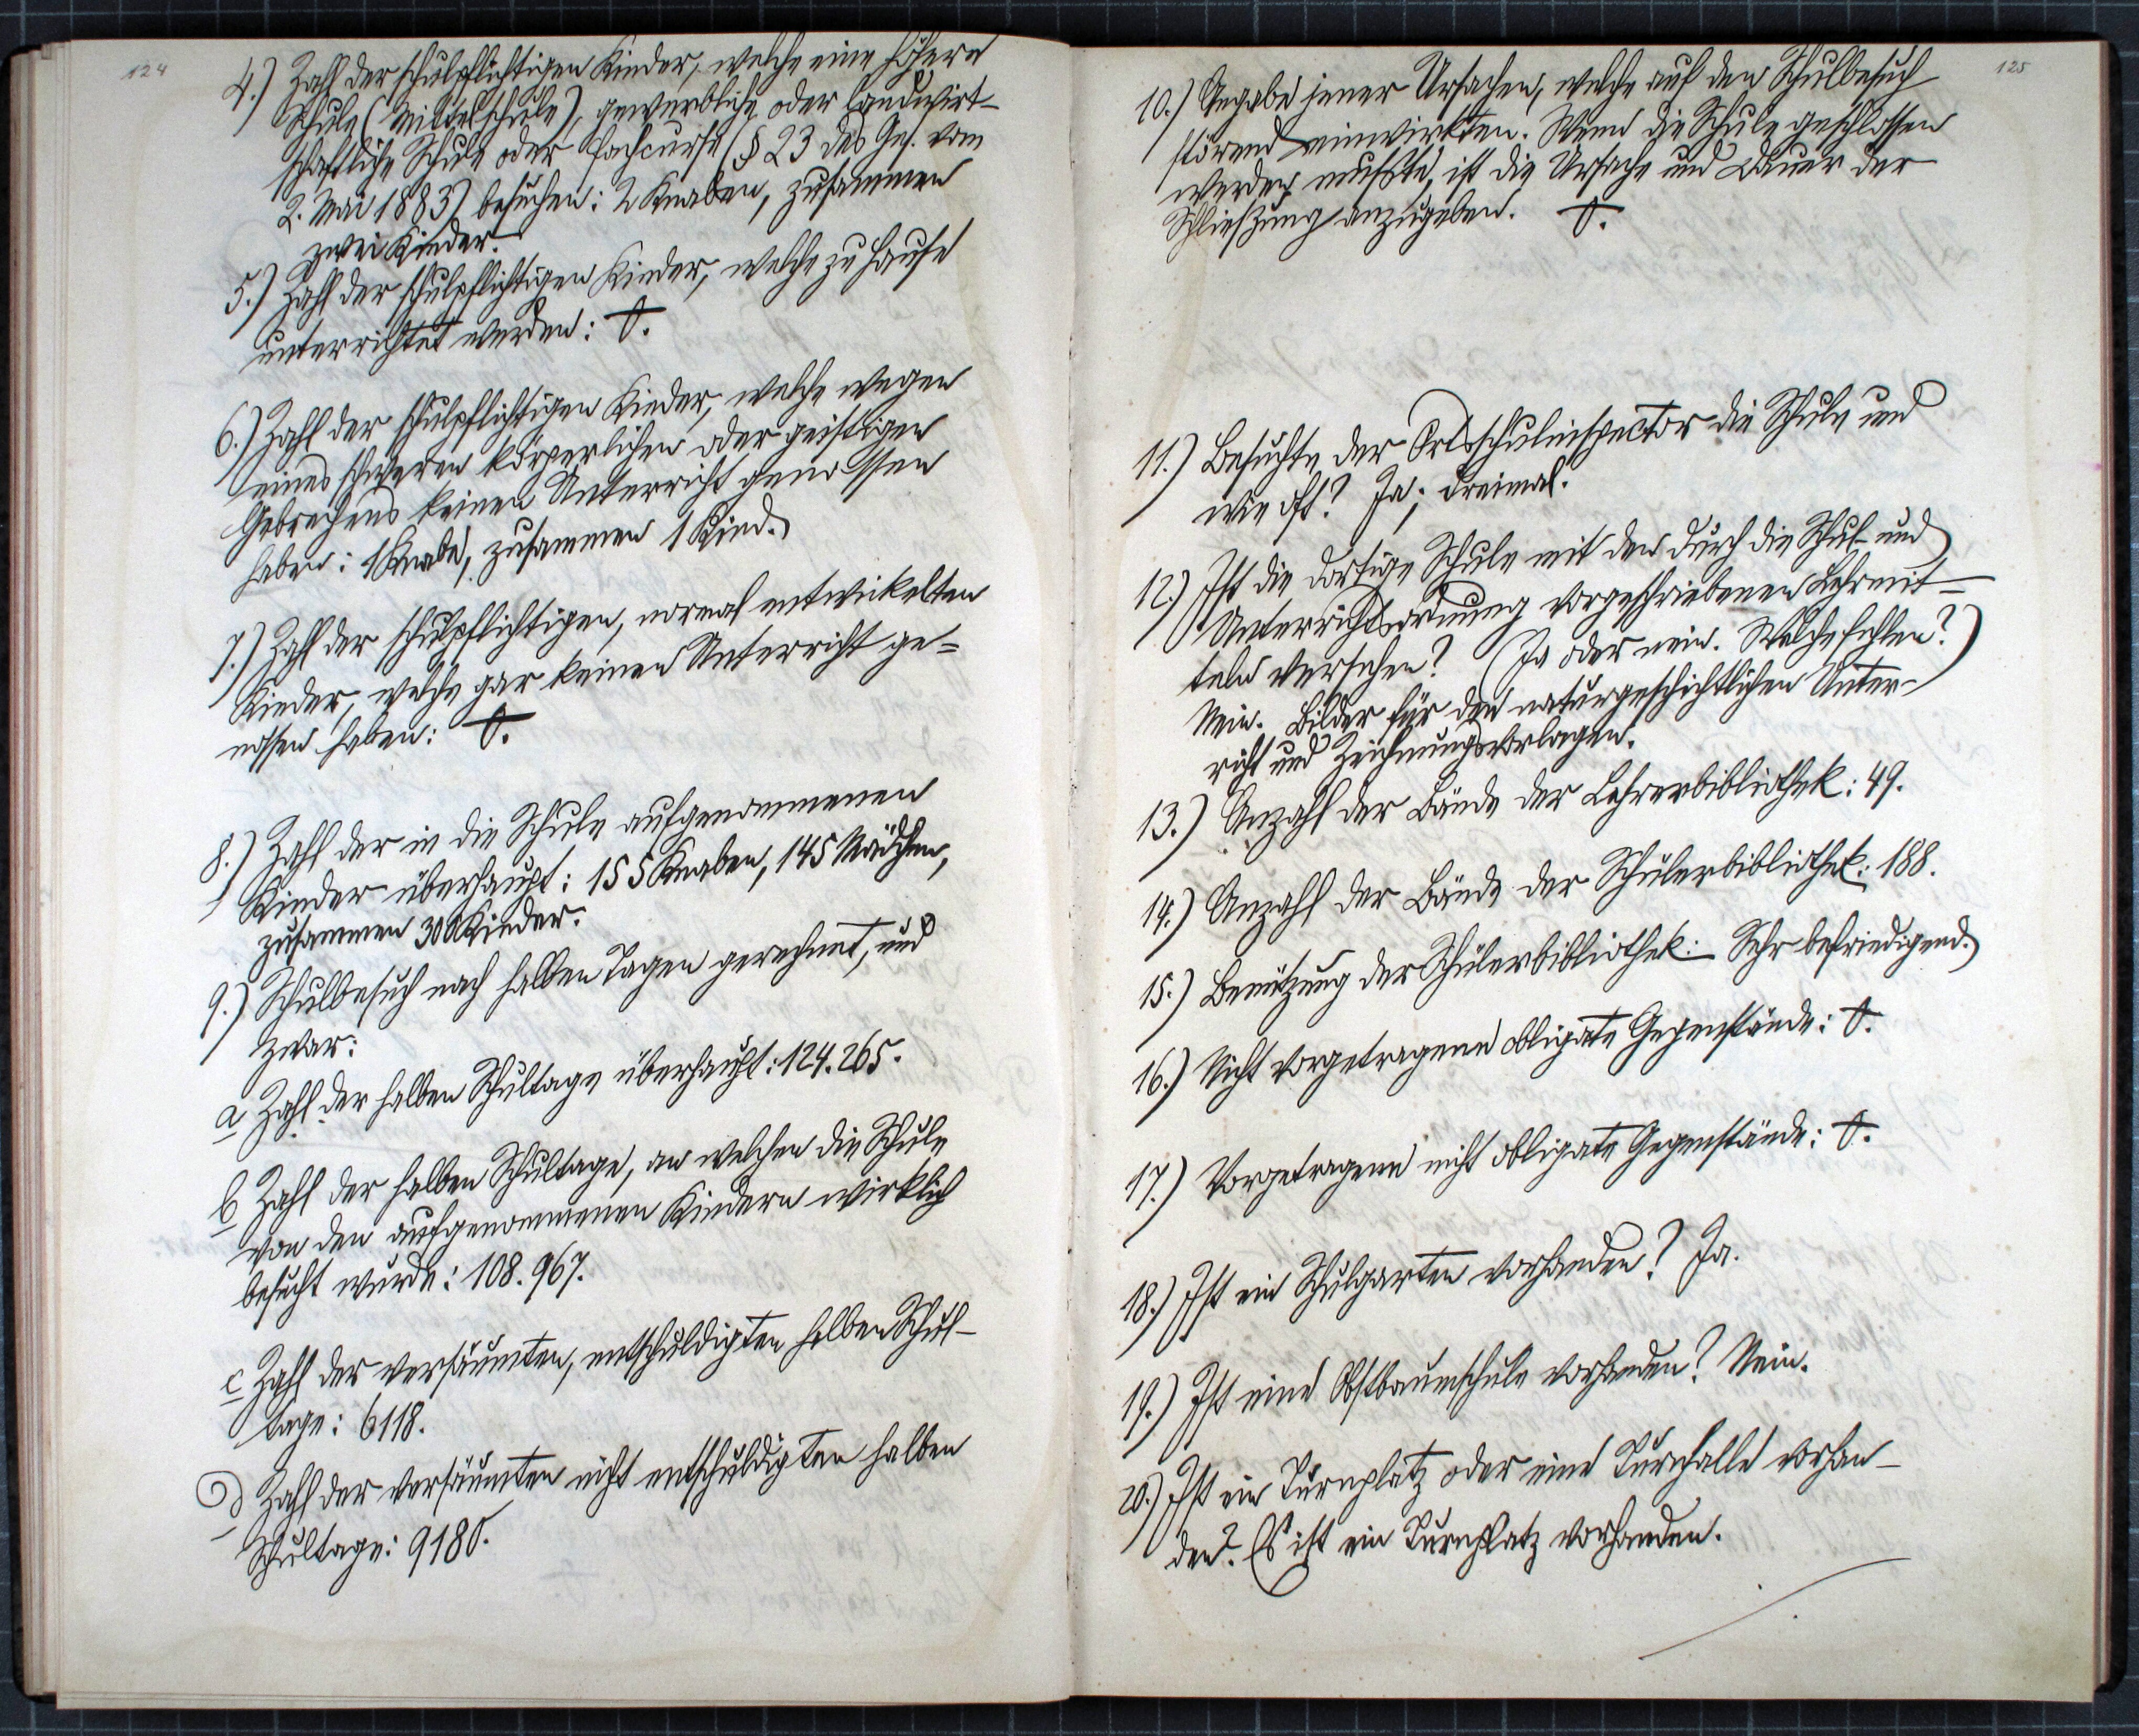 124
4.) Zahl der schulpflichtigen Kinder, welche eine höhere
Schule (Mittelschule), gewerbliche oder landwirt-
schaftliche Schule oder Fachcurse (§ 23 des Ges. vom
2. Mai 1883) besuchen: 2 Knaben, zusammen
zwei Kinder.
5.) Zahl der schulpflichtigen Kinder, welche zu Hause
unterrichtet werden: 0.
6.) Zahl der schulpflichtigen Kinder, welche wegen
eines schweren körperlichen oder geistigen
Gebrechens keinen Unterricht genossen
haben: 1 Knabe, zusammen 1 Kind.
7.) Zahl der schulpflichtigen, normal entwickelten
Kinder, welche gar keinen Unterricht ge=
nossen haben: 0.
8.) Zahl der in die Schule aufgenommenen
Kinder überhaupt: 155 Knaben, 145 Mädchen,
zusammen 300 Kinder.
9.) Schulbesuch nach halben Tagen gerechnet, und
zwar:
a Zahl der halben Schultage überhaupt: 124.265.
b Zahl der halben Schultage, an welchen die Schule
von den aufgenommenen Kindern wirklich
besucht wurde: 108.967.
c Zahl der versäumten, entschuldigten halben Schul-
tage: 6118.
d Zahl der versäumten nicht entschuldigten halben
Schultage: 9180.
125
10.) Angabe jener Ursachen, welche auf den Schulbesuch
störend einwirkten. Wenn die Schule geschlossen
werden mußte, ist die Ursache und Dauer der
Schließung anzugeben. 0.
11.) Besuchte der Ortsschulinspector die Schule und
wie oft? Ja; dreimal.
12.) Ist die dortige Schule mit den durch die Schul- und
Unterrichtsordnung vorgeschriebenen Lehrmit-
teln versehen? (Ja oder nein. Welche fehlen?)
Nein. Bilder für den naturgeschichtlichen Unter-
richt und Zeichnungsvorlagen.
13.) Anzahl der Bände der Lehrerbibliothek: 49.
14.) Anzahl der Bände der Schülerbibliothek: 188.
15.) Benützung der Schülerbibliothek: Sehr befriedigend.
16.) Nicht vorgetragene obligate Gegenstände: 0.
17.) Vorgetragene nicht obligate Gegenstände: 0.
18.) Ist ein Schulgarten vorhanden? Ja.
19.) Ist eine Obstbaumschule vorhanden? Nein.
20.) Ist ein Turnplatz oder eine Turnhalle vorhan-
den? Es ist ein Turnplatz vorhanden.